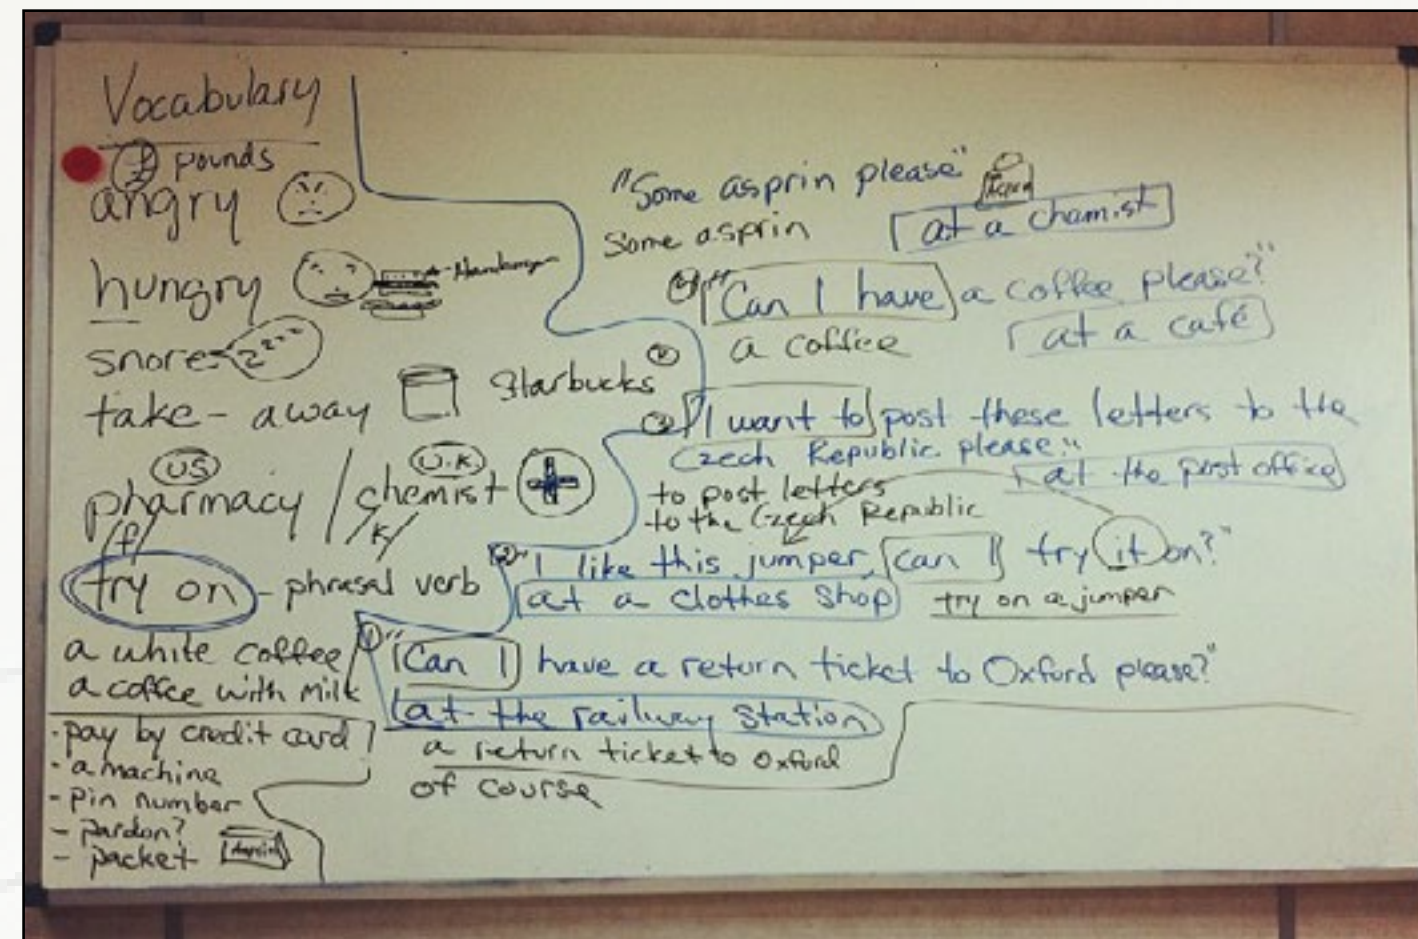 Vocabulary
£ pounds
angry
hungry Hamburger
snore zzzz
take-away Starbucks
US U.K
pharmacy / chemist
/f/ /k/
try on - phrasal verb
a white coffee
a coffee with milk
- pay by credit card
- a machine
- pin number
- pardon?
- packet
"Some asprin please"
Some asprin
at a chamist
"Can I have a coffee please?"
at a café
a coffee
"I want to post these letters to the
Czech Republic please."
at the post office
to post letters
to the Czech Republic
② "I like this jumper, can I try it on?"
at a clothes shop
try on a jumper
① "Can I have a return ticket to Oxford please?"
at the railway station
a return ticket to Oxford
of course